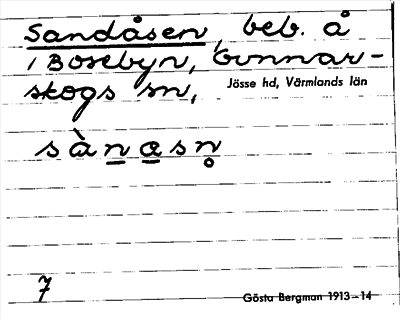 Sandåsen, beb. å
i Bosebyn, Gunnar-
skogs sn,
Jösse hd, Värmlands län
sànɑsn̥
7
Gösta Bergman 1913–14